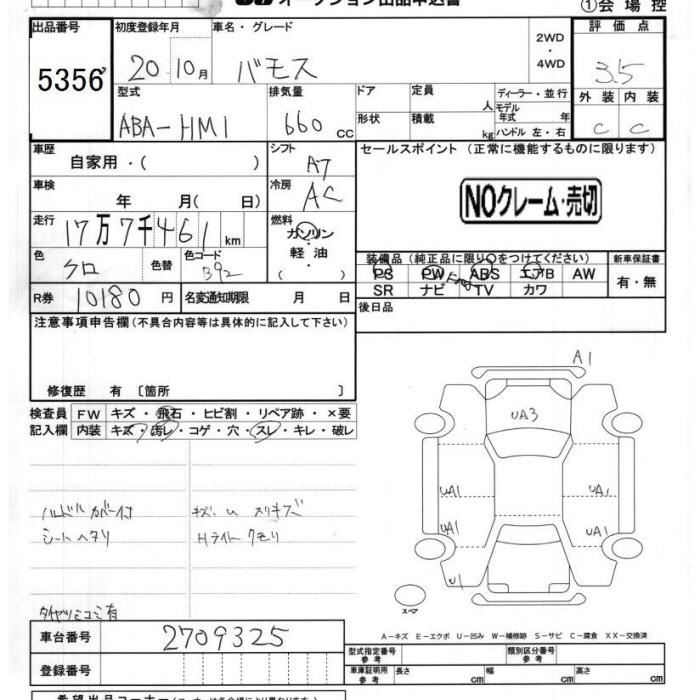 オークション出品申込書
①会場控
出品番号 初度登録年月 車名・グレード 評価点
5356 20 10月 バモス 2WD・4WD 3.5
型式 排気量 ドア 定員 人 ディーラー・並行 外装 内装
ABA-HM1 660 CC 形状 積載 kg モデル年式 年 ハンドル 左・右 C C
車歴 シフト セールスポイント(正常に機能するものに限ります)
自家用・( ) A7
車検 冷房 NOクレーム・売切
年 月( 日) AC
走行 燃料
17万7千461km ガソリン
色 色替 色コード 軽油 装備品(純正品に限り○をつけてください) 新車保証書
クロ B92 ( ) PS PW ABS エアB AW 有・無
R券 10180円 名変通知期限 月 日 SR ナビ TV カワ
注意事項申告欄(不具合内容等は具体的に記入して下さい) 後日品
修復歴 有 〔箇所 〕
検査員 FW キズ・飛石・ヒビ割・リペア跡・×要
記入欄 内装 キズ・汚レ・コゲ・穴・スレ・キレ・破レ
A1
UA3
UA1 UA1
UA1 UA1
U1
ハンドルカバー付 キズ、U スリキズ
シートヘタリ Hライトクモリ
タイヤツミコミ有 スペア
A-キズ E-エクボ U-凹み W-補修跡 S-サビ C-腐食 XX-交換済
車台番号 2709325 型式指定番号 参考 類別区分番号 参考
登録番号 車庫証明用 参考 長さ cm 幅 cm 高さ cm
希望出品コーナー